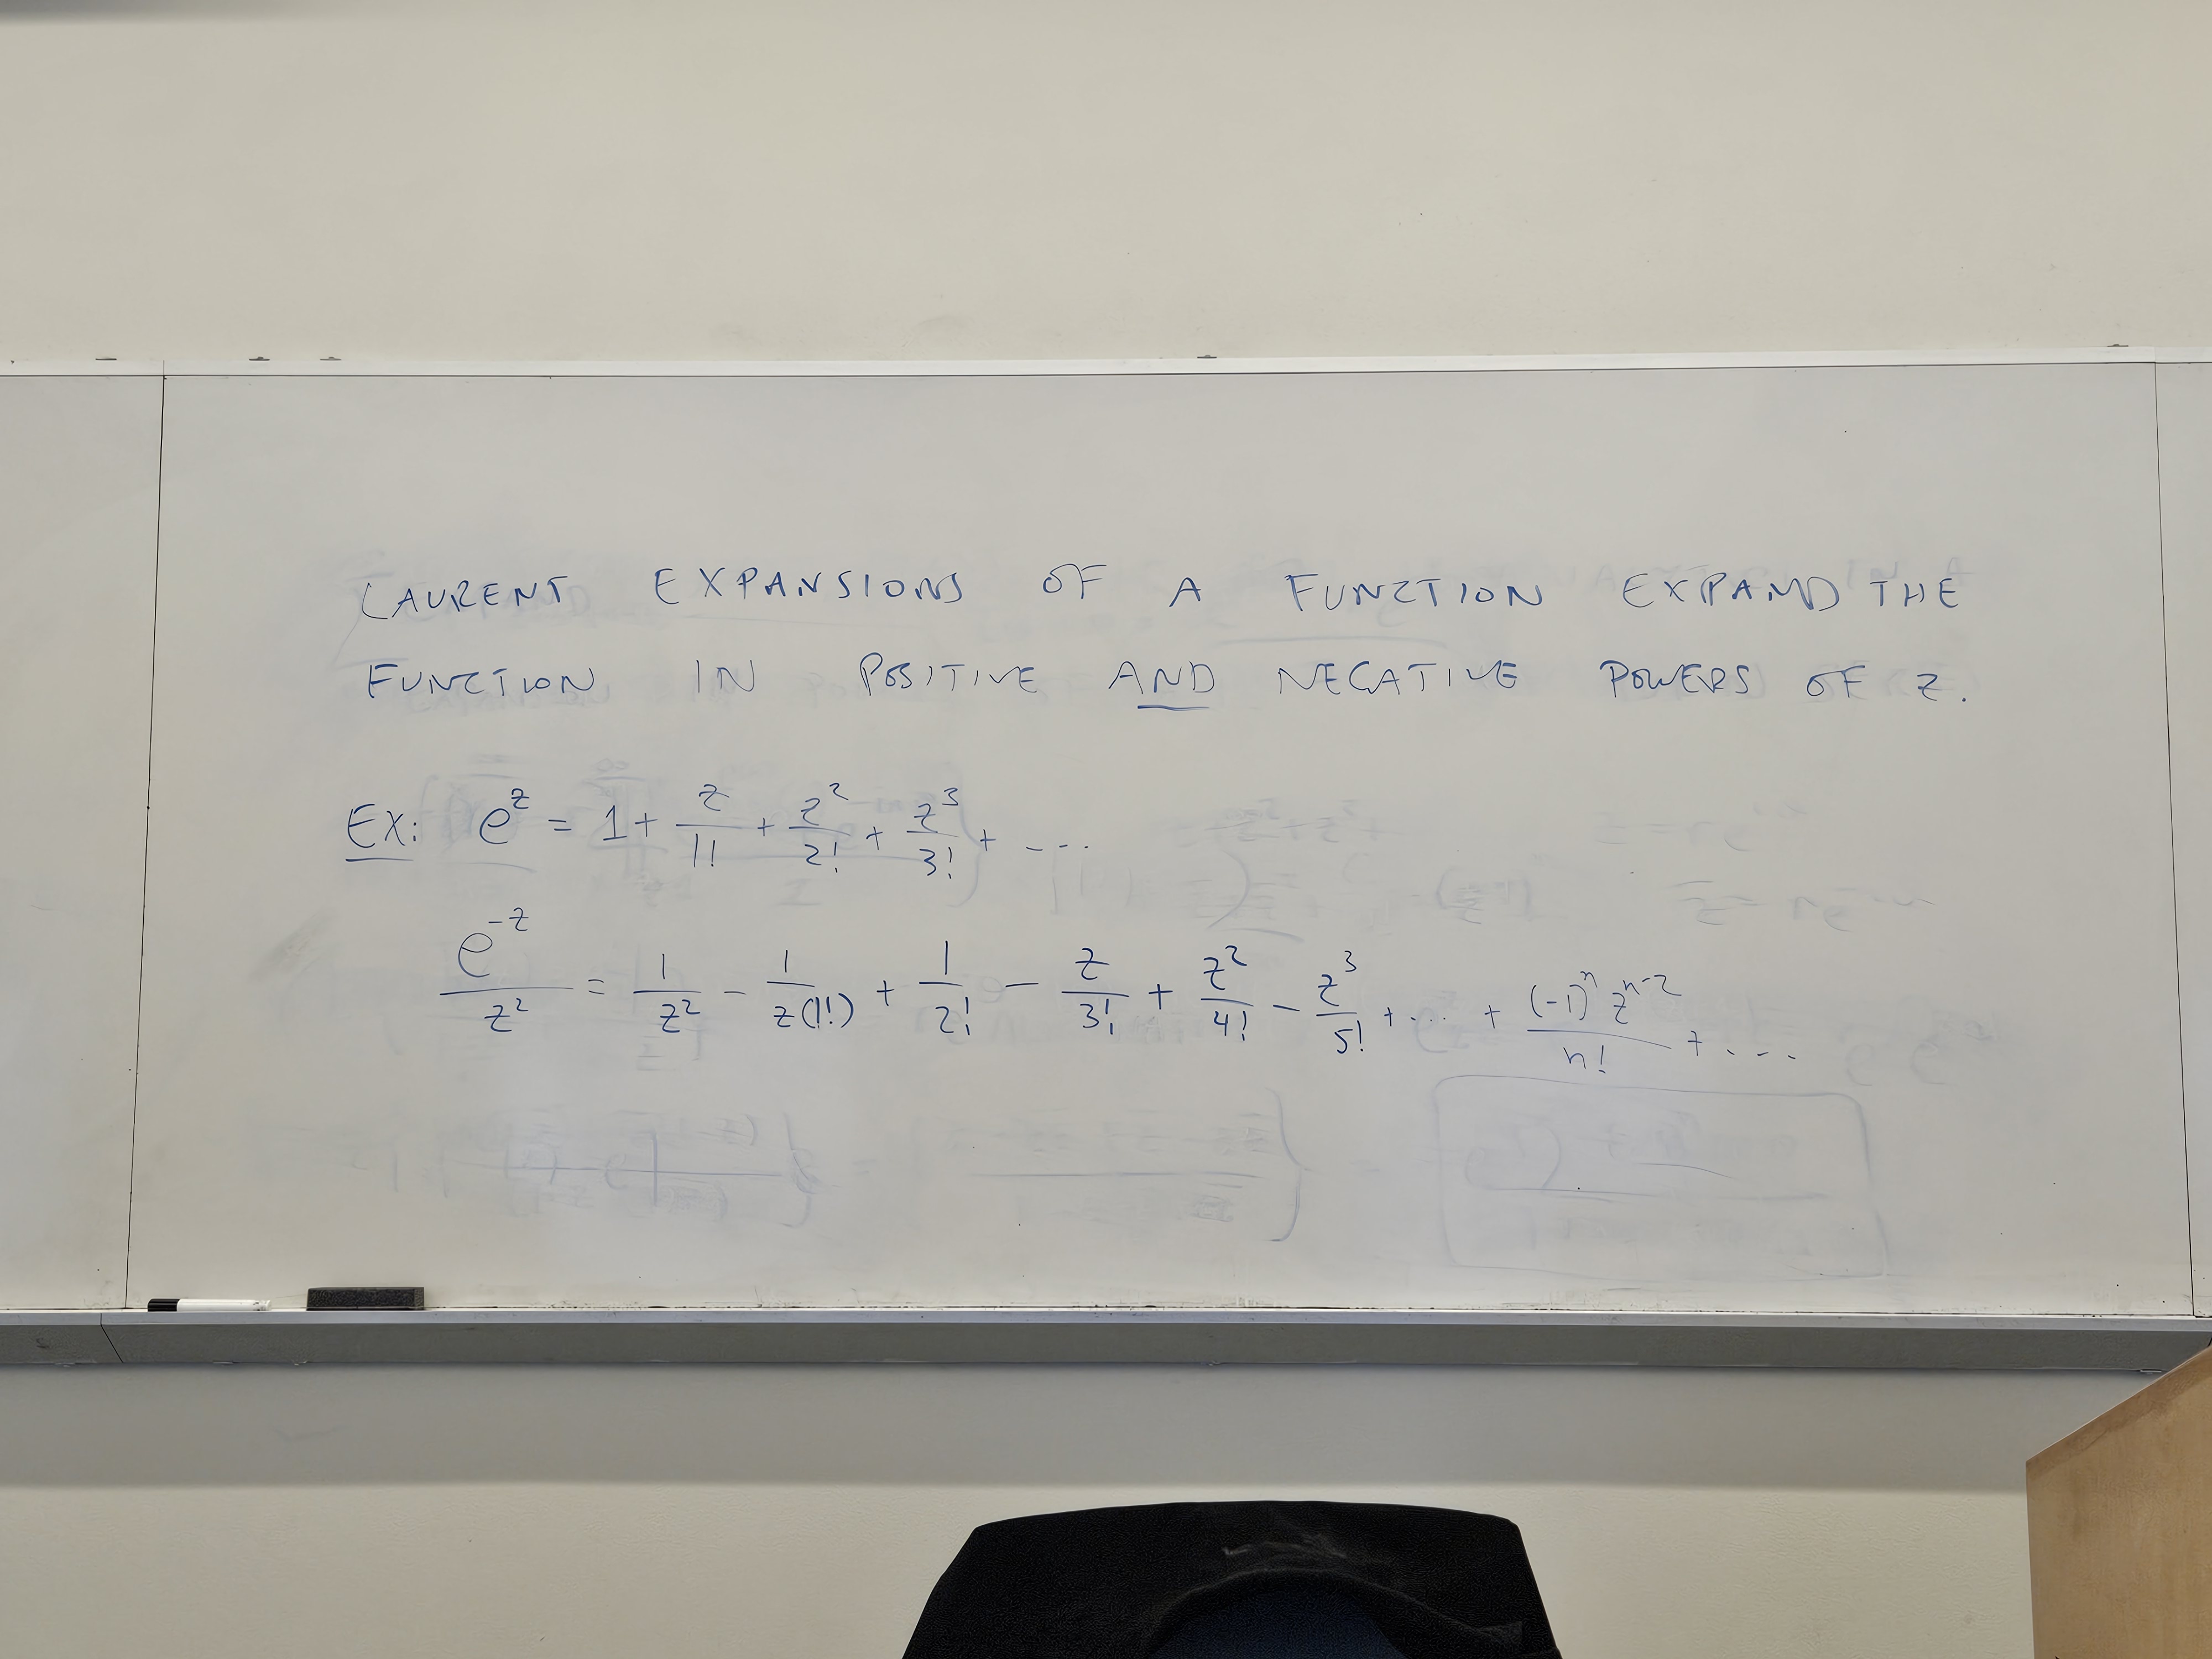 LAURENT EXPANSIONS OF A FUNCTION EXPAND THE
FUNCTION IN POSITIVE AND NEGATIVE POWERS OF z.
EX: e^z = 1 + z/1! + z^2/2! + z^3/3! + ...
e^-z/z^2 = 1/z^2 - 1/z(1!) + 1/2! - z/3! + z^2/4! - z^3/5! + ... + (-1)^n z^n-2/n! + ...